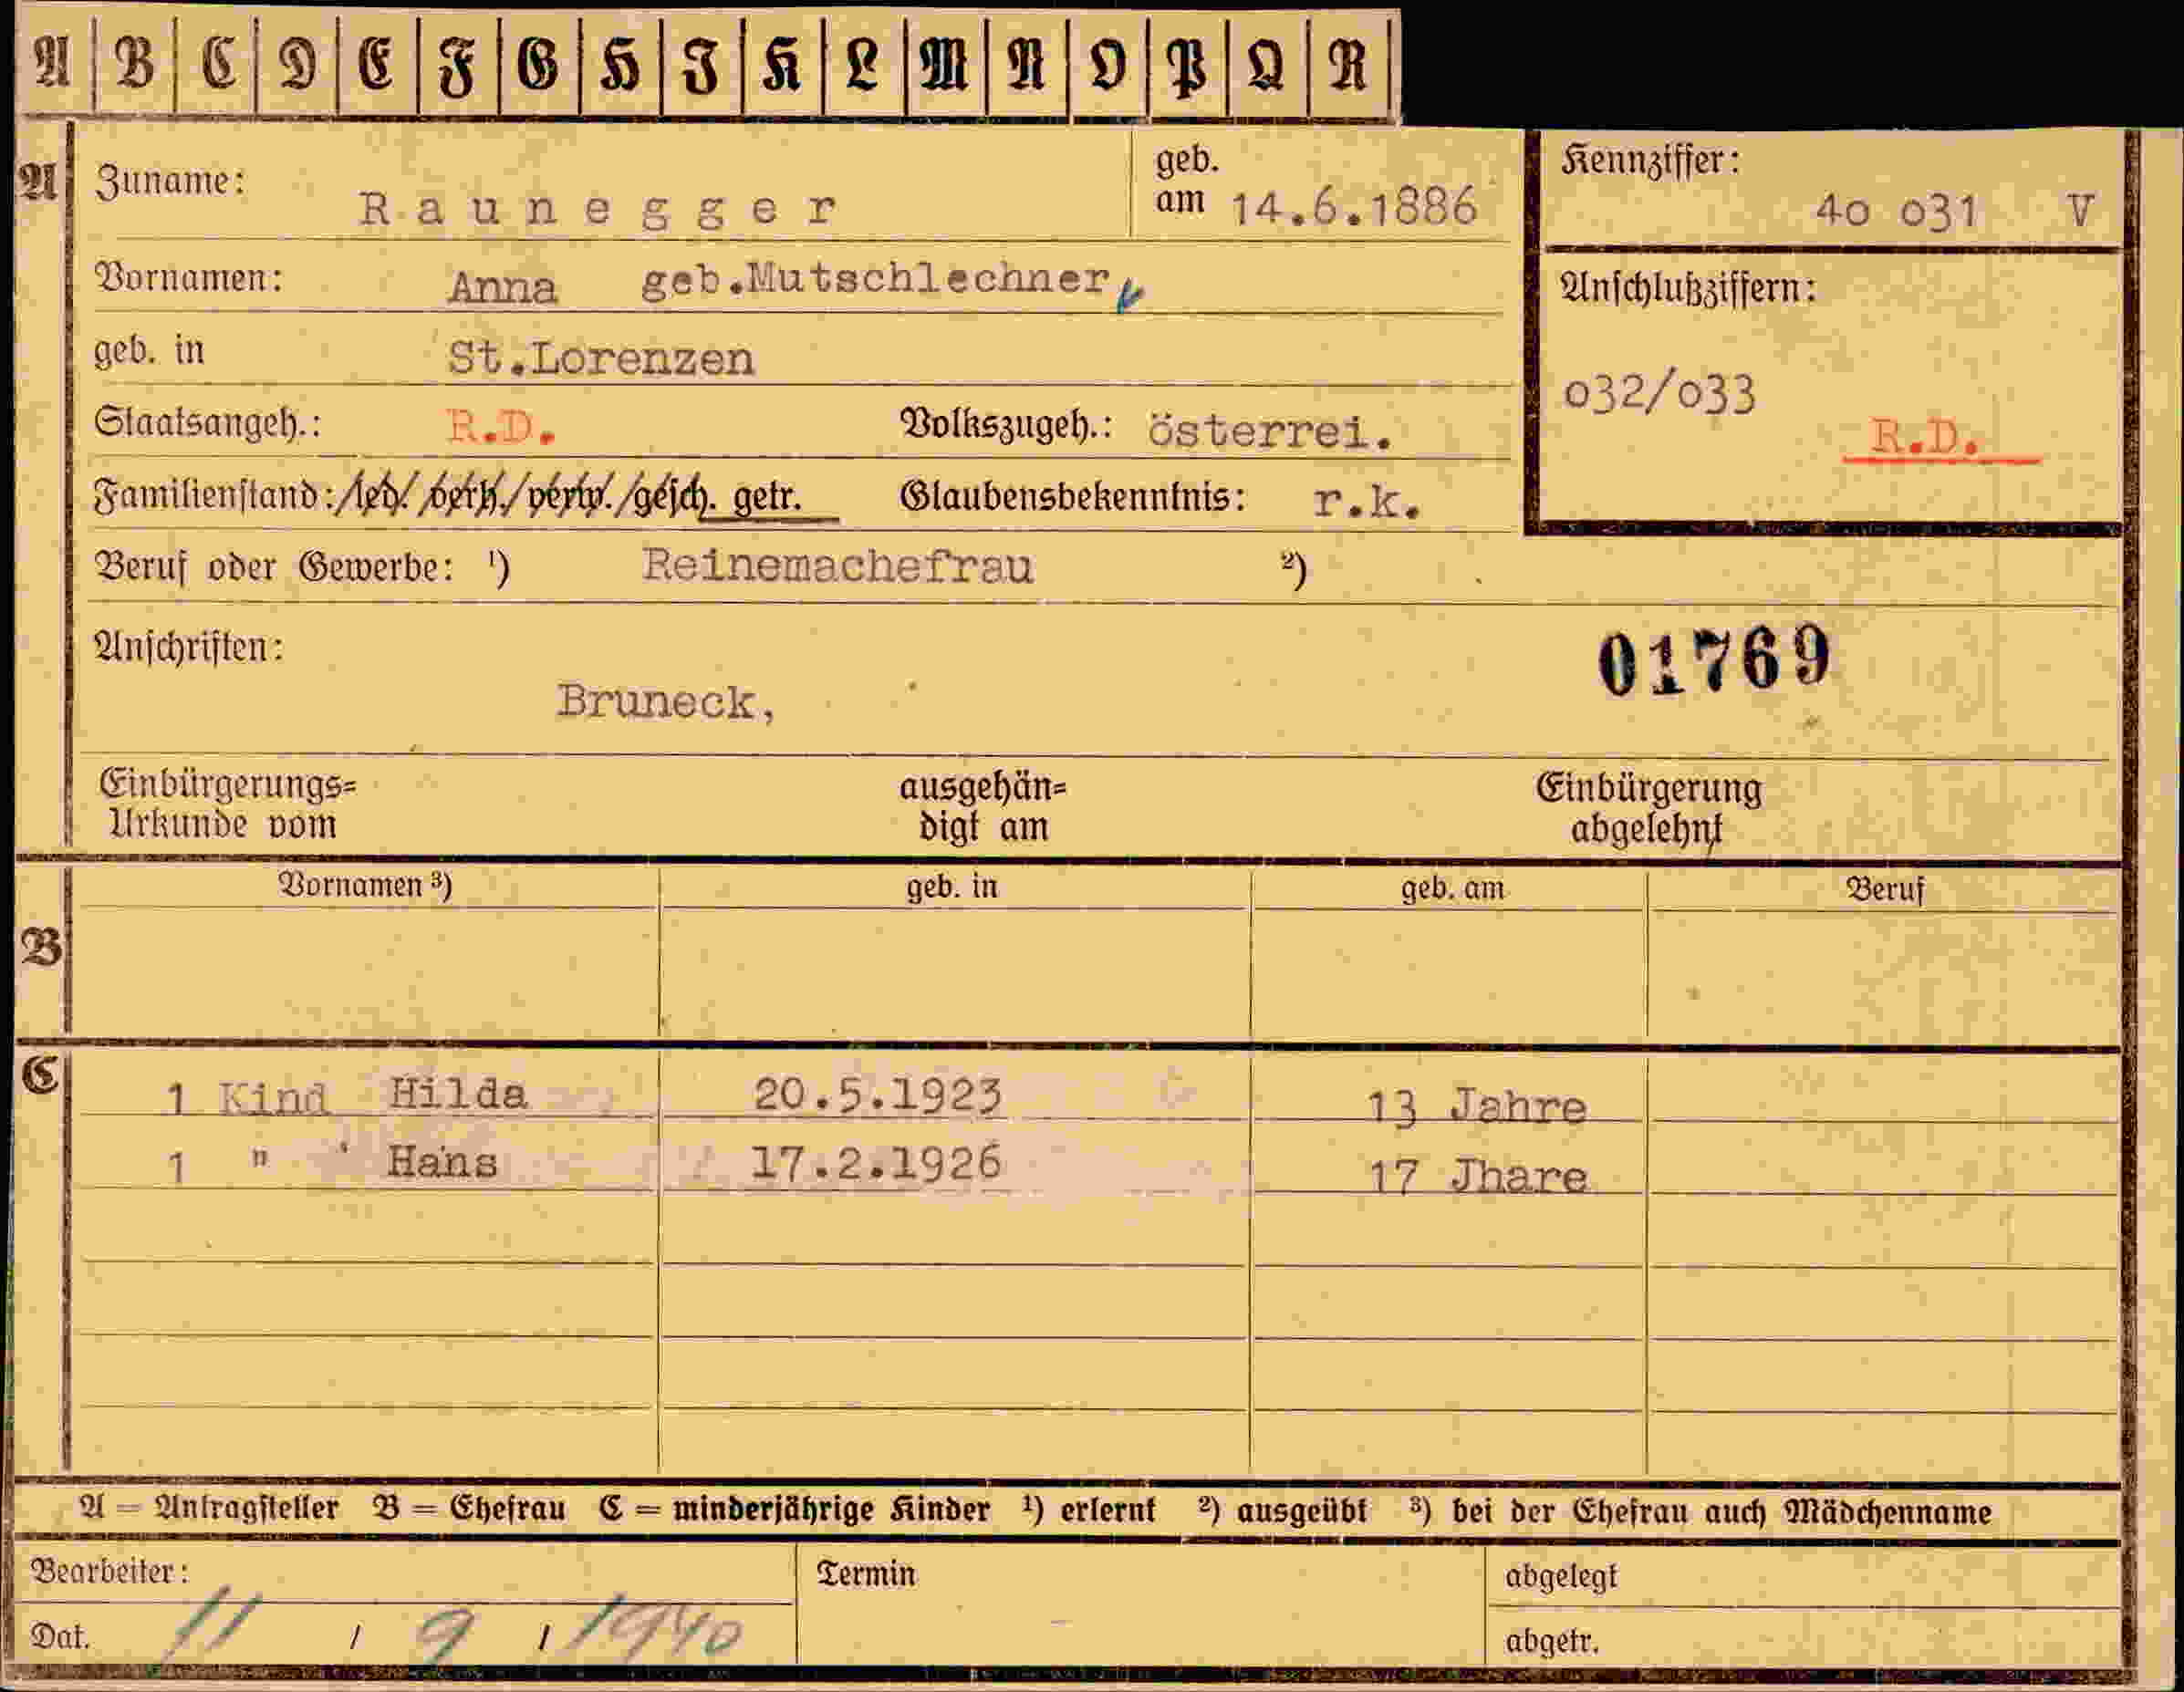 A B C D E F G H I K L M N O P Q R
A Zuname: Raunegger geb. am 14.6.1886 Kennziffer: 4o o31 V
Vornamen: Anna geb.Mutschlechner
Anschlußziffern:
geb. in St.Lorenzen
o32/o33
Staatsangeh.: R.D. Volkszugeh.: österrei. R.D.
Familienstand: led./verh./verw./gesch. getr. Glaubensbekenntnis: r.k.
Beruf oder Gewerbe: ¹) Reinemachefrau ²)
Anschriften: 01769
Bruneck,
Einbürgerungs= ausgehän= Einbürgerung
Urkunde vom digt am abgelehnt
Vornamen ³) geb. in geb. am Beruf
B
C 1 Kind Hilda 20.5.1923 13 Jahre
1 " Hans 17.2.1926 17 Jhare
A = Antragsteller B = Ehefrau C = minderjährige Kinder ¹) erlernt ²) ausgeübt ³) bei der Ehefrau auch Mädchenname
Bearbeiter: Termin abgelegt
Dat. 11 / 9 / 1940 abgetr.